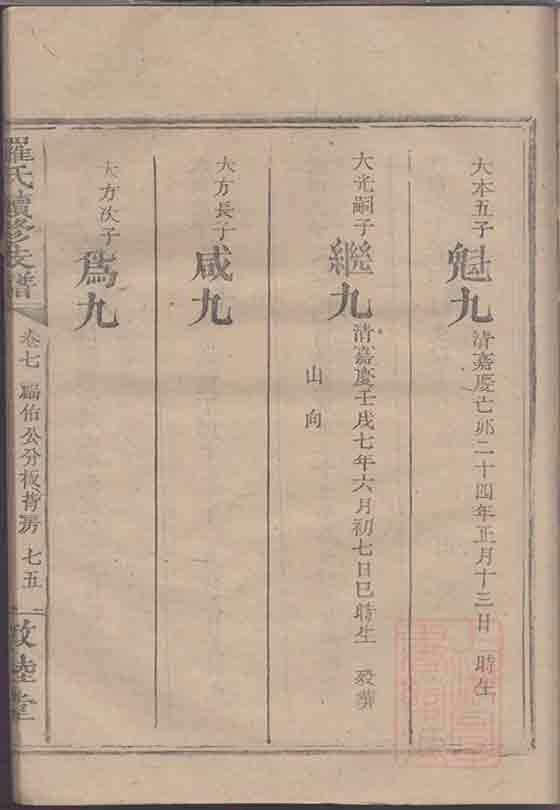 大本五子
魁九
清嘉慶己卯二十四年正月十三日 時生
大光嗣子
繼九
清嘉慶壬戌七年六月初七日巳時生 歿葬
山向
大方長子
咸九
大方次子
為九
羅氏續修族譜
卷七 瑞佑公分板背房 七五
敦睦堂